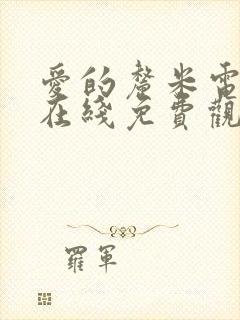 愛的釐米電
在綫免費觀
羅軍